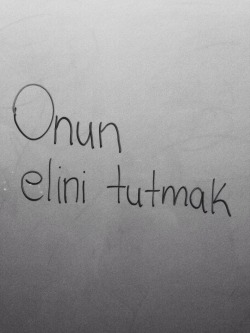 Onun
elini tutmak